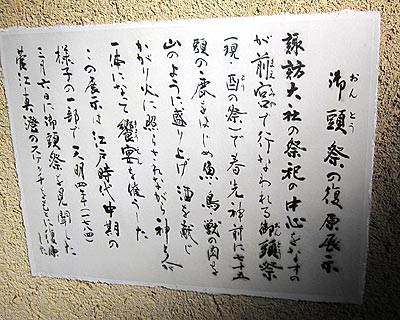 御頭祭の復原展示
おんとう
諏訪大社の祭祀の中心をなすの
が前宮で行なわれる御頭祭
(現・酉の祭)で春先、神前に七十五
頭の鹿をはじめ魚・鳥・獣の肉を
山のように盛り上げ酒を献じ
かがり火に照らされながら神と人
一体になって饗宴を催うした
この展示は江戸時代中期の
様子の一部で天明四年(一七八四)
三月六日に御頭祭を見聞した
菅江真澄のスケッチをもとに復原した